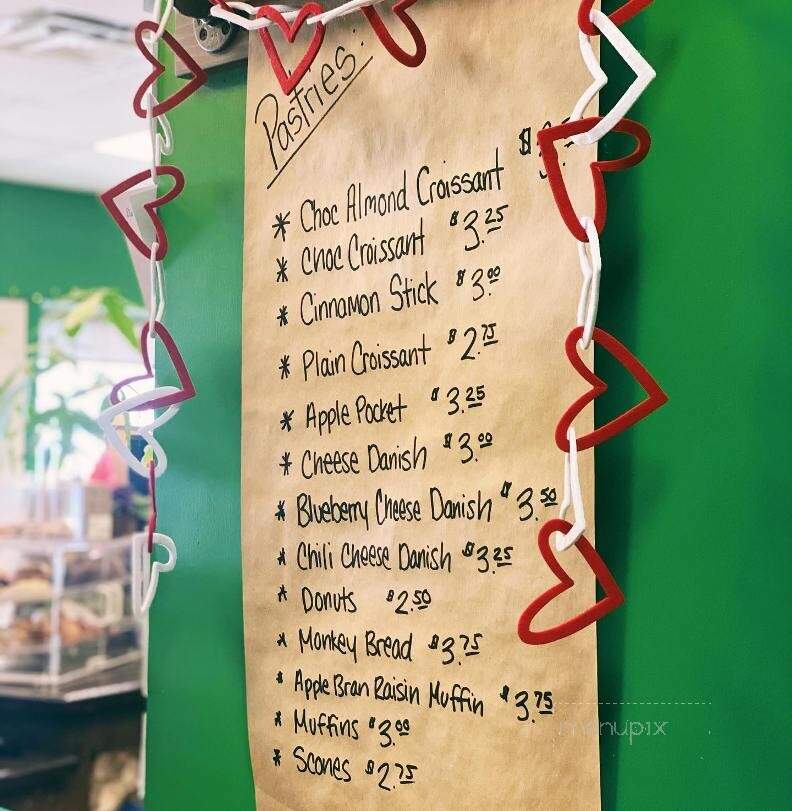 Pastries:
* Choc Almond Croissant
* Choc Croissant $3.25
* Cinnamon Stick $3.00
* Plain Croissant $2.75
* Apple Pocket $3.25
* Cheese Danish $3.00
* Blueberry Cheese Danish $3.50
* Chili Cheese Danish $3.25
* Donuts $2.50
* Monkey Bread $3.75
* Apple Bran Raisin Muffin $3.75
* Muffins $3.00
* Scones $2.75
menupix